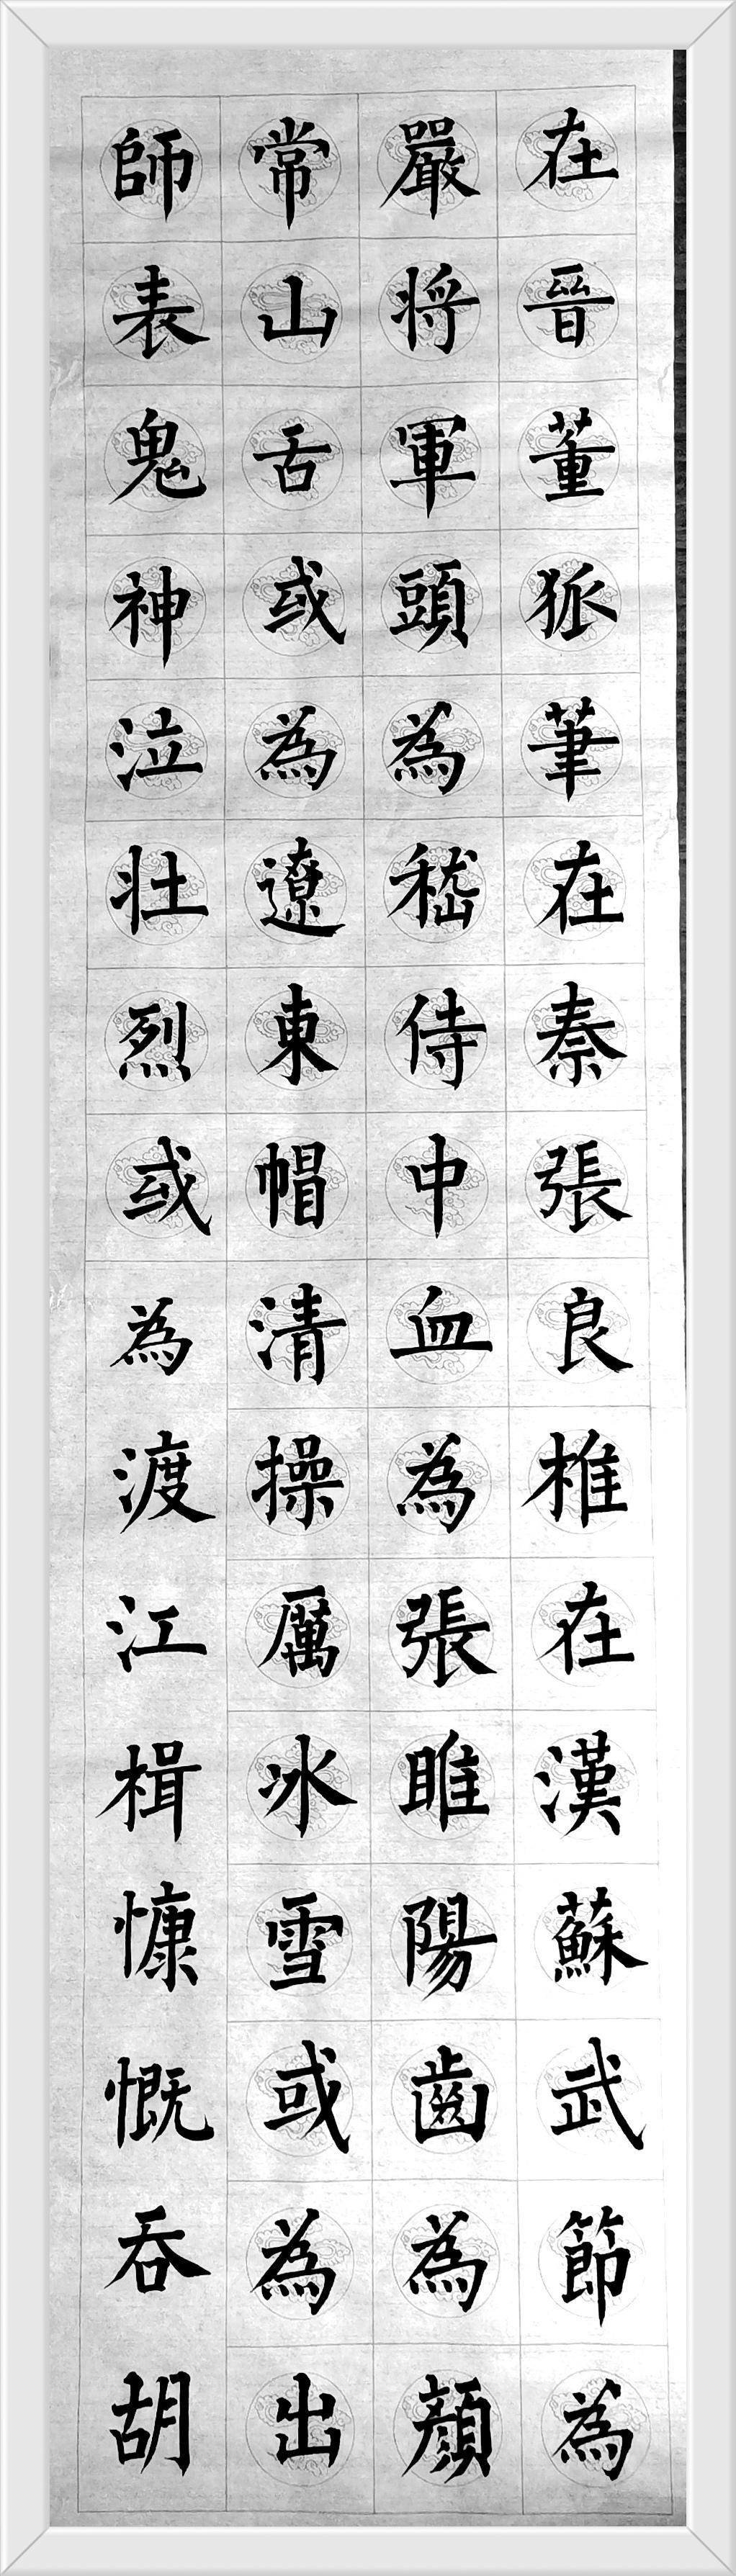 在晉董狐筆在秦張良椎在漢蘇武節為
嚴將軍頭為嵇侍中血為張睢陽齒為顏
常山舌或為遼東帽清操厲冰雪或為出
師表鬼神泣壯烈或為渡江楫慷慨吞胡